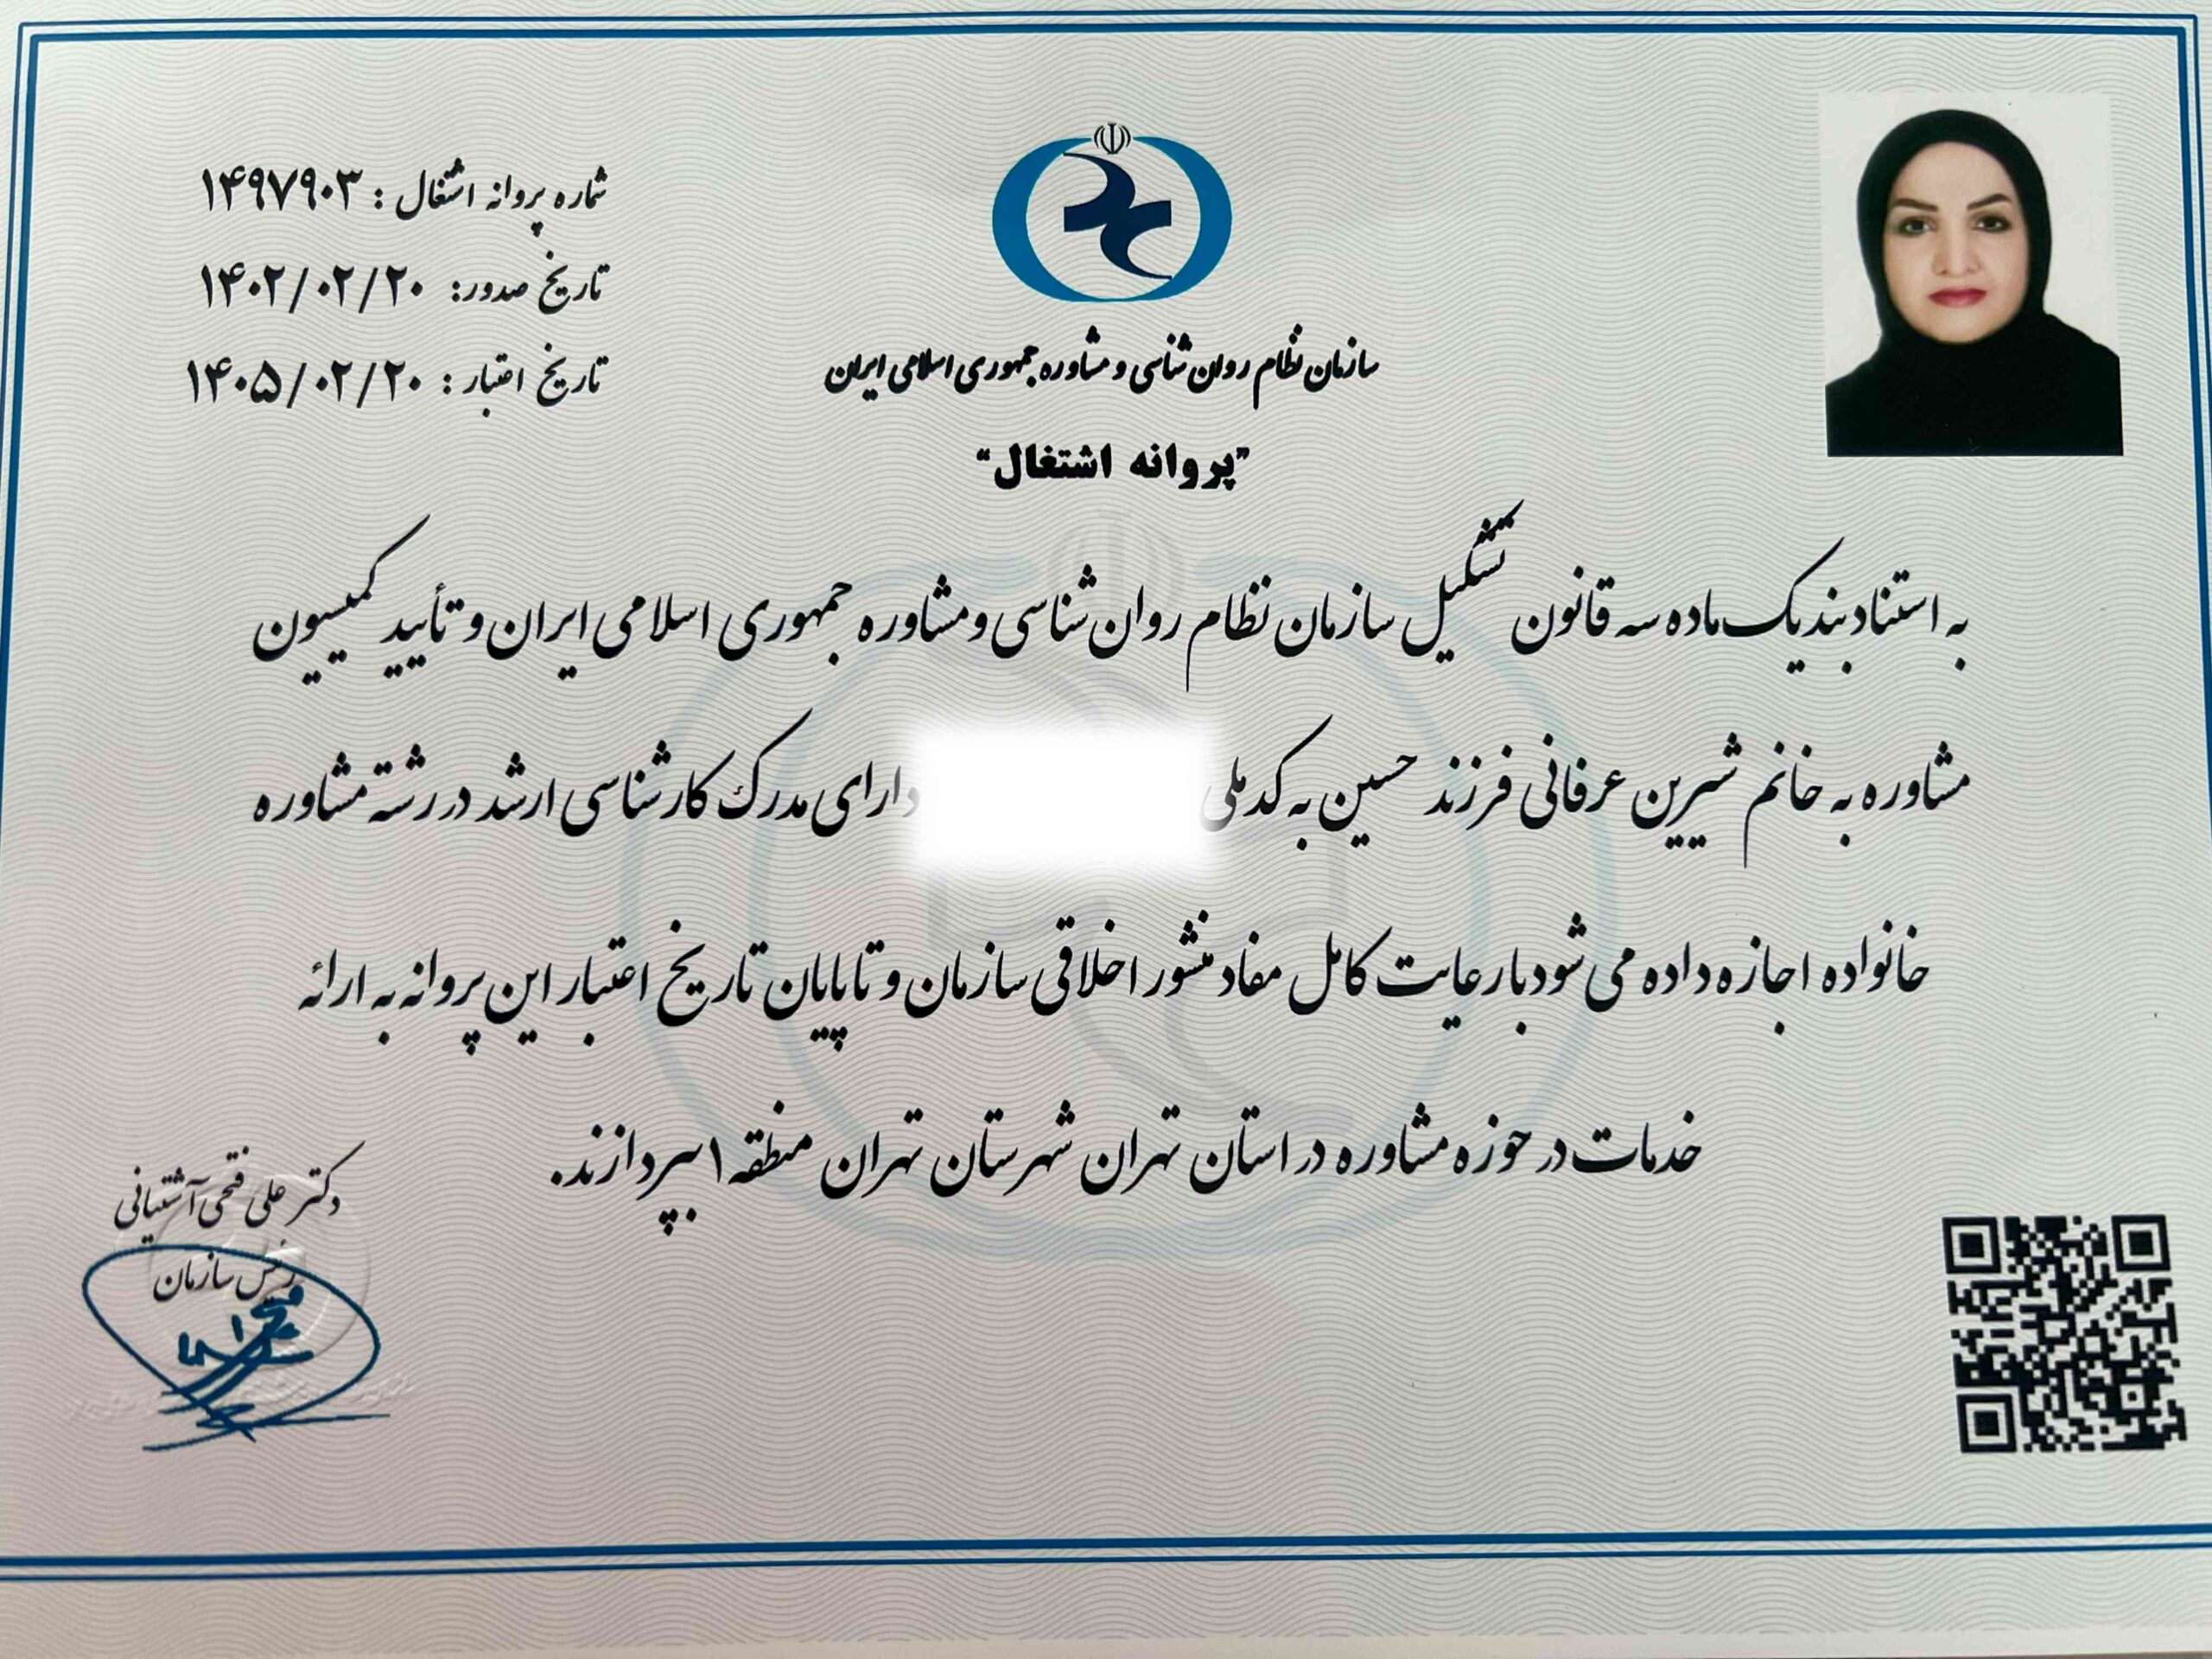 سازمان نظام روان‌شناسی و مشاوره جمهوری اسلامی ایران
شماره پروانه اشتغال : ۱۴۹۷۹۰۳
تاریخ صدور: ۱۴۰۲/۰۲/۲۰
تاریخ اعتبار : ۱۴۰۵/۰۲/۲۰
"پروانه اشتغال"
به استناد بند یک ماده سه قانون تشکیل سازمان نظام روان‌شناسی و مشاوره جمهوری اسلامی ایران و تأیید کمیسیون
مشاوره به خانم شیرین عرفانی فرزند حسین به کد ملی دارای مدرک کارشناسی ارشد در رشته مشاوره
خانواده اجازه داده می شود با رعایت کامل مفاد منشور اخلاقی سازمان و تا پایان تاریخ اعتبار این پروانه به ارائه
خدمات در حوزه مشاوره در استان تهران شهرستان تهران منطقه ۱ بپردازند.
دکتر علی فتحی آشتیانی
رئیس سازمان